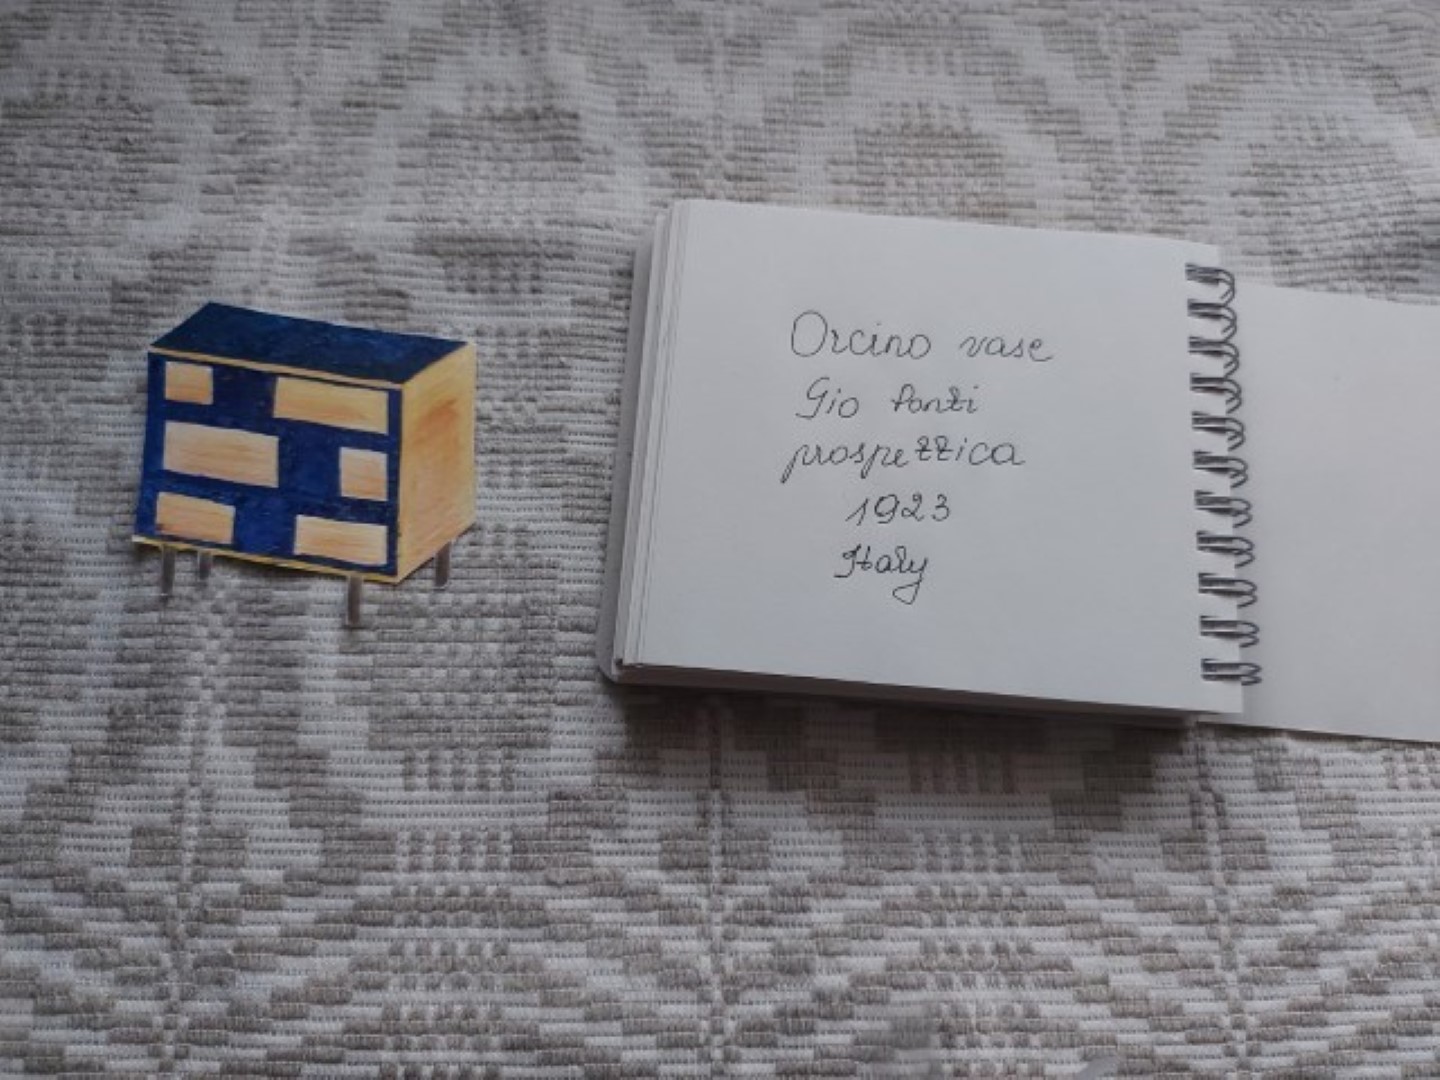 Orcino vase
Gio Ponti
prospezzica
1923
Italy